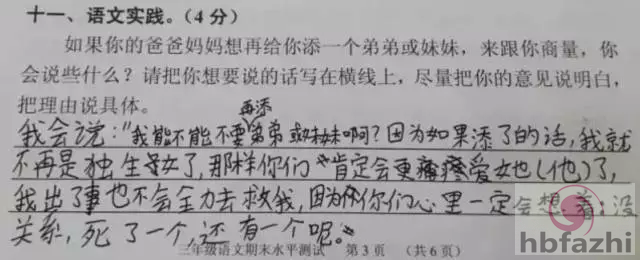 十一、语文实践。(4分)
如果你的爸爸妈妈想再给你添一个弟弟或妹妹，来跟你商量，你
会说些什么？请把你想要说的话写在横线上，尽量把你的意见说明白，
把理由说具体。
再添
我会说："我能不能不要弟弟或妹妹啊？因为如果添了的话，我就
不再是独生女了，那样你们肯定会更疼爱她(他)了，
我出了事也不会全力去救我，因为你们心里一定会想着：没
关系，死了一个，还有一个呢。"
三年级语文期末水平测试 第3页 (共6页)
hbfazhi